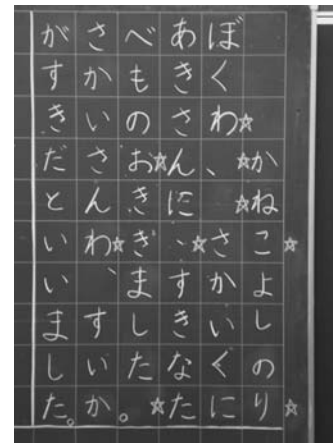 ☆か☆ねこ☆よしのり☆
ぼくわ☆、☆さかいぐに
あきさん☆に、すきな☆た
べものおきぎ☆ました。
さかいさんわ☆、すいか。
がすきだといいました。